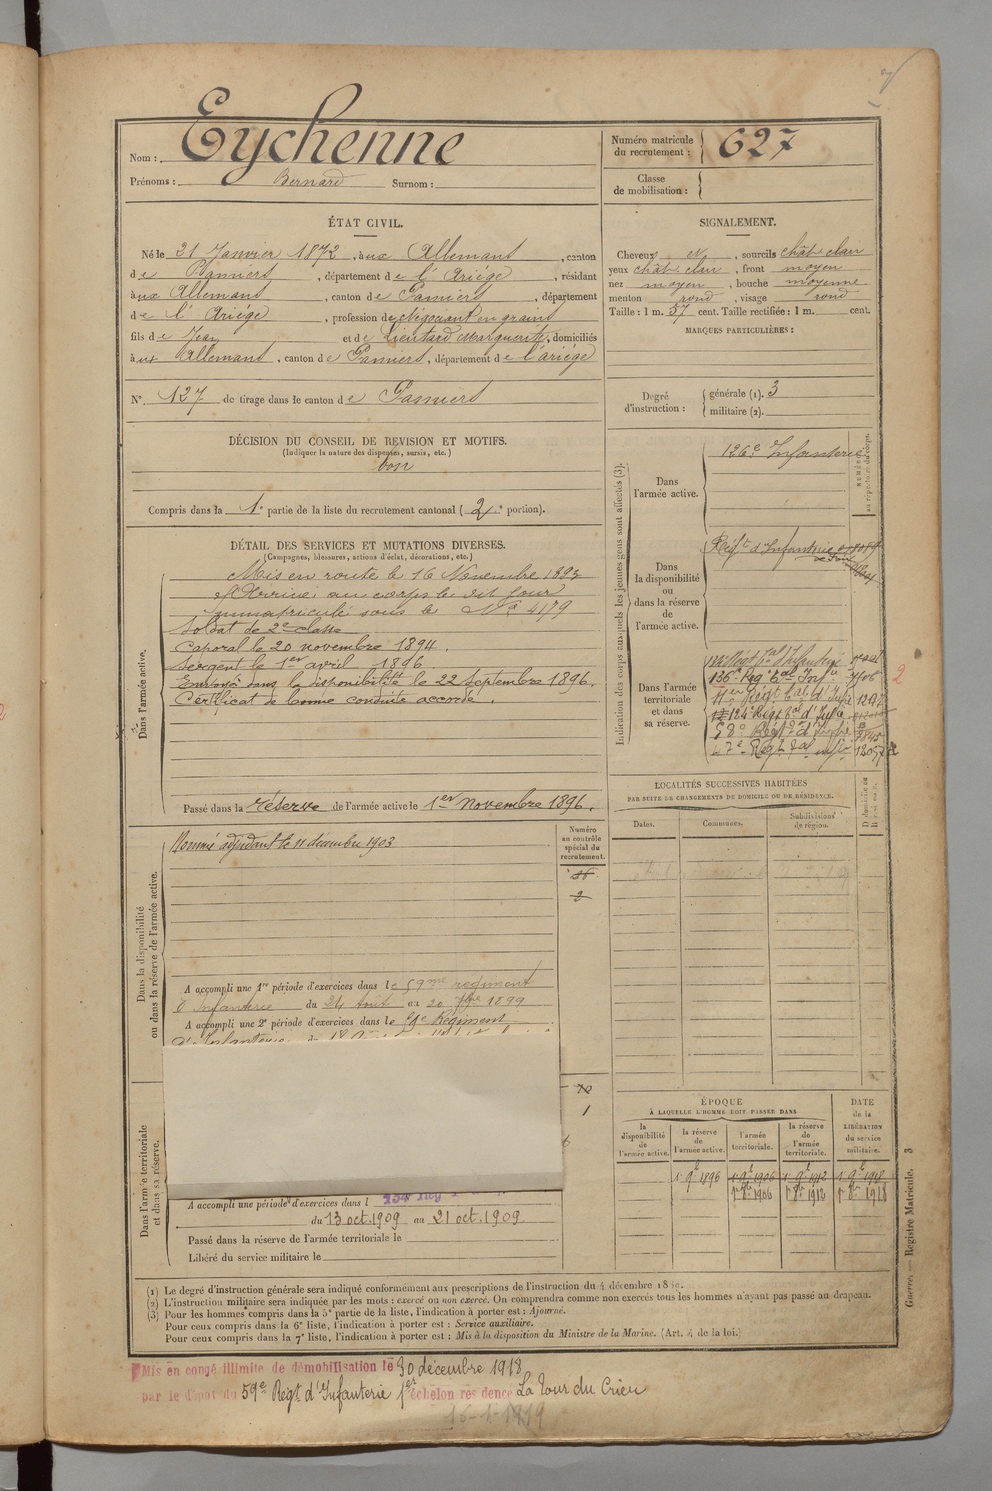 Nom : Eychenne
Prénoms : Bernard Surnom :
Numéro matricule du recrutement : 627
Classe de mobilisation :
ÉTAT CIVIL.
Né le 21 Janvier 1872, à aux Allemans, canton
de Pamiers, département de l'Ariège, résidant
à aux Allemans, canton de Pamiers, département
de l'Ariège, profession de Négociant en grains
fils de Jean et de Lientard Marguerite, domiciliés
à aux Allemans, canton de Pamiers, département de l'ariège
N° 127 de tirage dans le canton de Pamiers
SIGNALEMENT.
Cheveux et, sourcils chât clair
yeux chât clair, front moyen
nez moyen, bouche moyenne
menton rond, visage rond
Taille : 1 m. 57 cent. Taille rectifiée : 1 m. cent.
MARQUES PARTICULIÈRES :
Degré d'instruction : générale (1). 3
militaire (2).
DÉCISION DU CONSEIL DE REVISION ET MOTIFS.
(Indiquer la nature des dispenses, sursis, etc.)
bon
Compris dans la 1e partie de la liste du recrutement cantonal (2e portion).
DÉTAIL DES SERVICES ET MUTATIONS DIVERSES.
(Campagnes, blessures, actions d'éclat, décorations, etc.)
Dans l'armée active.
Mis en route le 16 Novembre 1893
et Arrivé au corps le dit jour
Immatriculé sous le N° 4179
Soldat de 2e classe
Caporal le 20 novembre 1894.
Sergent le 1er avril 1896.
Envoyé dans la disponibilité le 22 Septembre 1896.
Certificat de bonne conduite accordé.
Passé dans la réserve de l'armée active le 1er novembre 1896.
Indication des corps auxquels les jeunes gens sont affectés (3).
Dans l'armée active.
126e Infanterie
Dans la disponibilité ou dans la réserve de l'armée active.
Régt d'Infanterie
Dans l'armée territoriale et dans sa réserve.
136e Rég tal Infie
124e Régt tal d'Infie
LOCALITÉS SUCCESSIVES HABITÉES
PAR SUITE DE CHANGEMENTS DE DOMICILE OU DE RÉSIDENCE.
Dates. Communes. Subdivisions de région.
Dans la disponibilité ou dans la réserve de l'armée active.
Nommé adjudant le 11 décembre 1903
Numéro au contrôle spécial du recrutement.
2
A accompli une 1re période d'exercices dans le 59me régiment
d'Infanterie du 24 août au 20 7bre 1899
A accompli une 2e période d'exercices dans le 59e Régiment
d'Infanterie du
1
ÉPOQUE
À LAQUELLE L'HOMME DOIT PASSER DANS
la disponibilité de l'armée active. la réserve de l'armée active. l'armée territoriale. la réserve de l'armée territoriale.
DATE de la LIBÉRATION du service militaire.
1 9bre 1896 1 9bre 1906 1 9bre 1912 1 9bre 1918
1 8bre 1906 1 8bre 1912 1 8bre 1918
Dans l'armée territoriale et dans sa réserve.
A accompli une période d'exercices dans l
du 13 oct. 1909 au 21 oct. 1909
Passé dans la réserve de l'armée territoriale le
Libéré du service militaire le
(1) Le degré d'instruction générale sera indiqué conformément aux prescriptions de l'instruction du 4 décembre 18
(2) L'instruction militaire sera indiquée par les mots : exercé ou non exercé. On comprendra comme non exercés tous les hommes n'ayant pas passé au drapeau.
(3) Pour les hommes compris dans la 5e partie de la liste, l'indication à porter est : Ajourné.
Pour ceux compris dans la 6e liste, l'indication à porter est : Service auxiliaire.
Pour ceux compris dans la 7e liste, l'indication à porter est : Mis à la disposition du Ministre de la Marine. (Art. 4 de la loi.)
Guerre. — Registre Matricule. 3
Mis en congé illimité de démobilisation le 30 décembre 1918
par le dépôt du 59e Régt d'Infanterie 1er échelon résidence La Tour du Crieu
16-1-1919